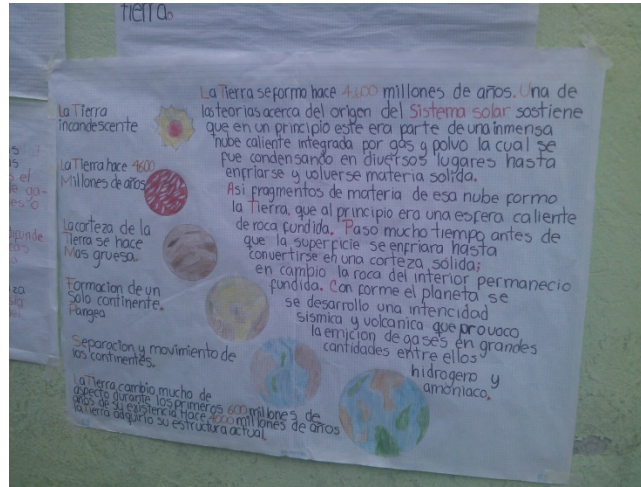 tierra.
La Tierra se formo hace 4,600 millones de años. Una de
las teorias acerca del origen del Sistema solar sostiene
que en un principio este era parte de una inmensa
nube caliente integrada por gas y polvo la cual se
fue condensando en diversos lugares hasta
enfriarse y volverse materia solida.
Asi fragmentos de materia de esa nube formo
la Tierra, que al principio era una esfera caliente
de roca fundida. Paso mucho tiempo antes de
que la superficie se enfriara hasta
convertirse en una corteza sólida;
en cambio la roca del interior permanecio
fundida. Con forme el planeta se
se desarrollo una intencidad
sismica y volcanica que provoco
la emicion de gases en grandes
cantidades entre ellos
hidrogeno y
amoniaco.
La Tierra
incandescente
La Tierra hace 4600
Millones de años
La corteza de la
Tierra se hace
Mas gruesa.
Formacion de un
Solo continente.
Pangea
Separacion y movimiento de
los continentes.
La Tierra cambio mucho de
aspecto durante los primeros 600 millones de
años de su existencia Hace 4000 millones de años
la Tierra adquirio su estructura actual.